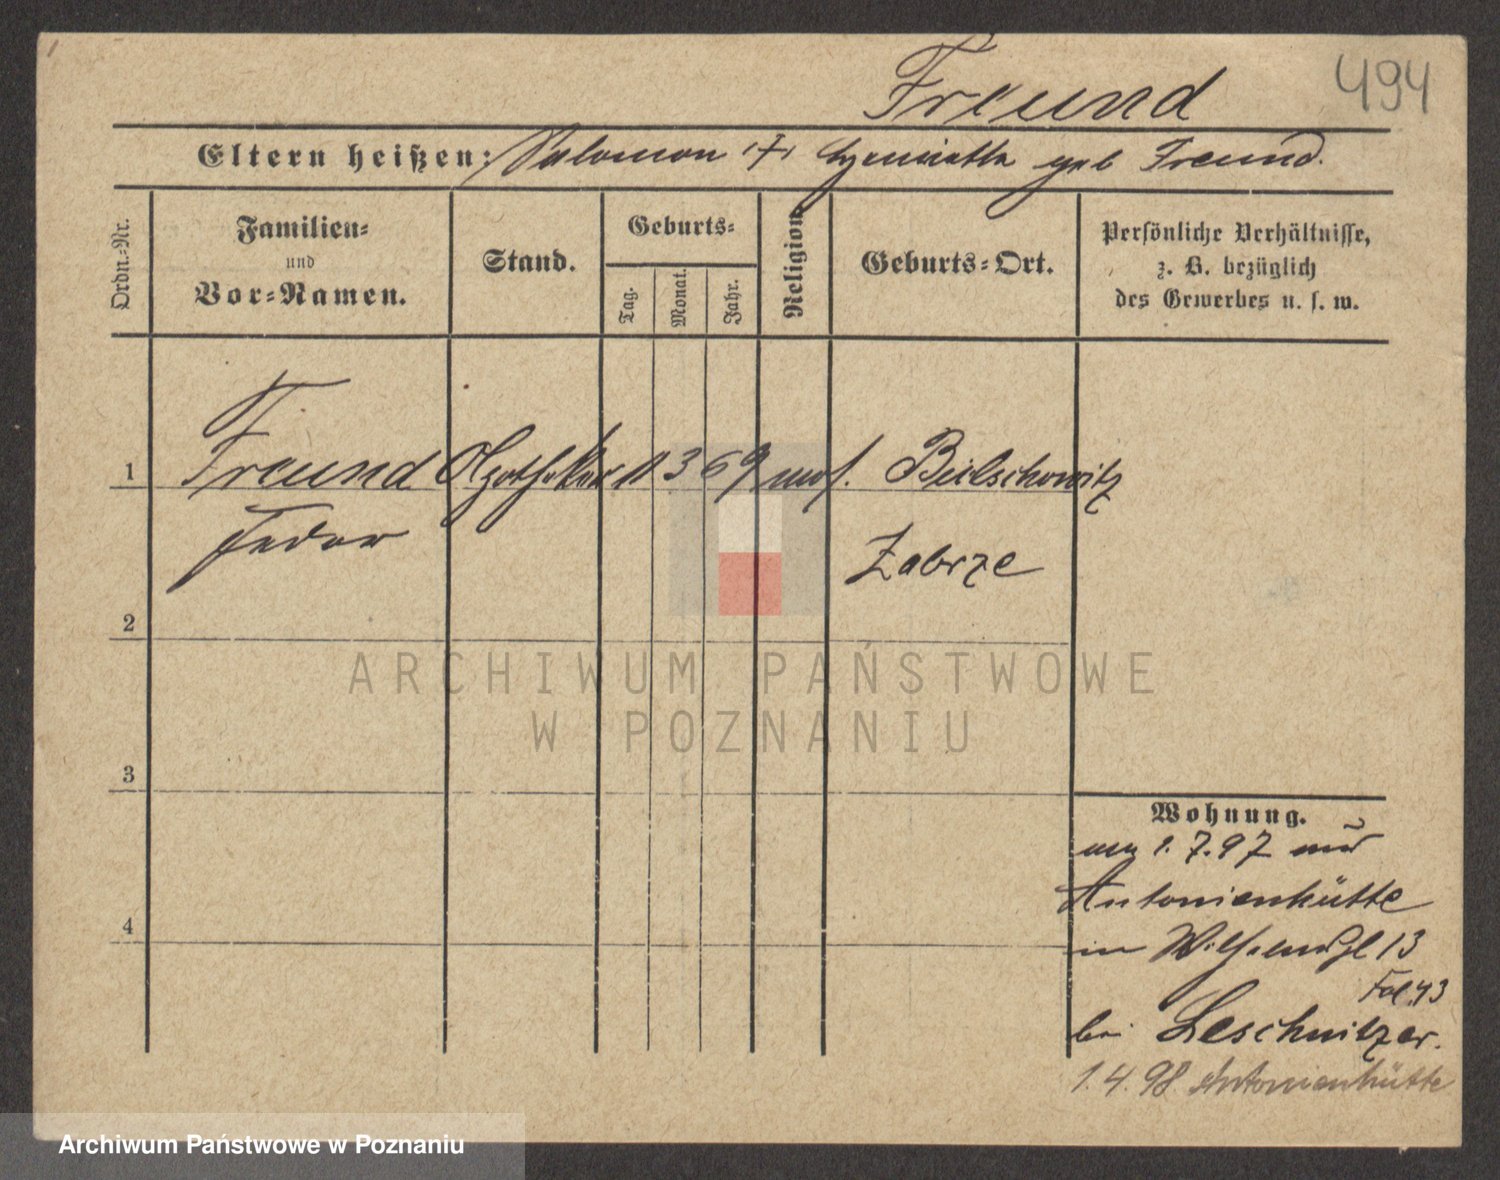 Freund 494
Eltern heißen: Salomon (†) Henriette geb Freund.
Ordn.-Nr.
Familien-
und
Vor-Namen.
Stand.
Geburts-
Tag.
Monat.
Jahr.
Religion.
Geburts-Ort.
Persönliche Verhältnisse,
z. B. bezüglich
des Gewerbes u. s. w.
1 Freund Apotheker 11 3 69 mos. Bielschowitz
Fedor Zabrze
2
3
4
Wohnung.
1.7.97
Antonienhütte
in 13
Fol. 43
bei Leschnitzer.
1.4.98 Antonienhütte
ARCHIWUM PAŃSTWOWE
W POZNANIU
Archiwum Państwowe w Poznaniu